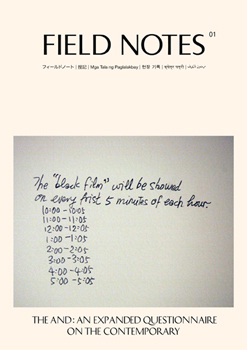 FIELD NOTES 01
フィールドノート | Mga Tala ng Paglalakbay | 현장 기록 |
The "black film" will be showed
on every frist 5 minutes of each hour.
10:00 - 10:05
11:00 - 11:05
12:00 - 12:05
1:00 - 1:05
2:00 - 2:05
3:00 - 3:05
4:00 - 4:05
5:00 - 5:05
THE AND: AN EXPANDED QUESTIONNAIRE
ON THE CONTEMPORARY